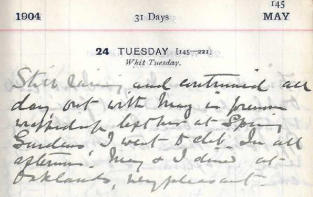 145
1904 31 Days MAY
24 TUESDAY [145—221]
Whit Tuesday.
Still raining and continued all
day out with May in
left her at Spring
Gardens, I went to club. In all
afternoon. May & I dined at
Oaklands, very pleasant.